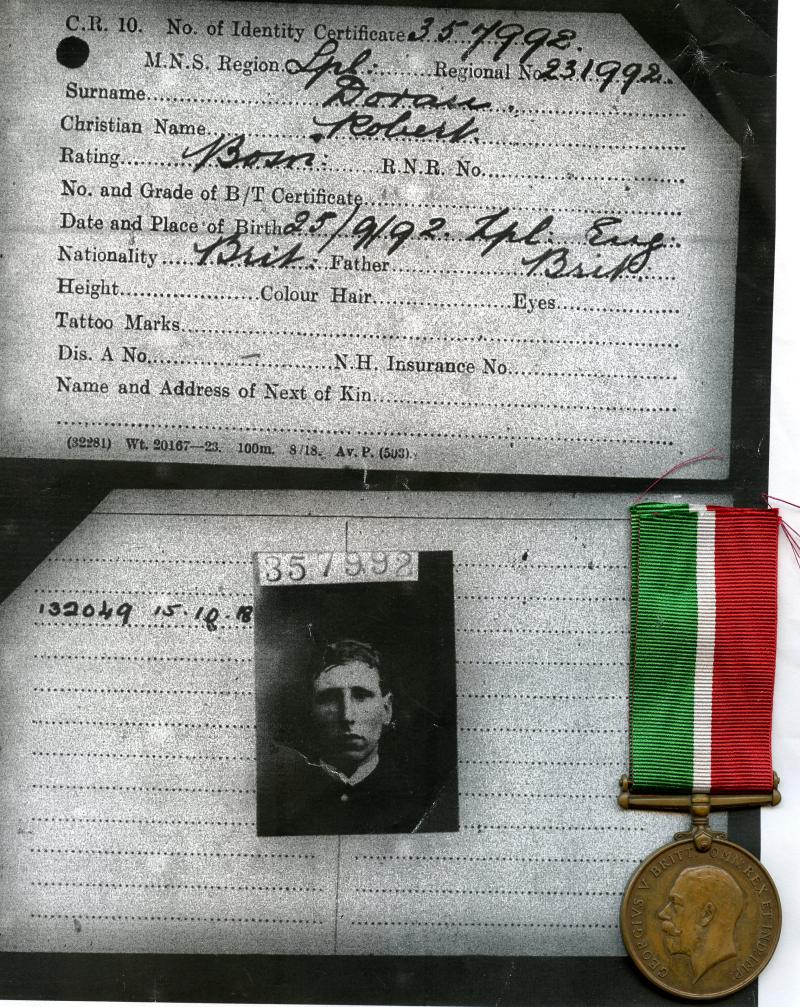 C.R. 10. No. of Identity Certificate 357992.
M.N.S. Region. Lpl: Regional No 231992.
Surname Doran.
Christian Name Robert.
Rating Bosn: R.N.R. No.
No. and Grade of B/T Certificate
Date and Place of Birth 25/9/92. Lpl. Eng.
Nationality Brit: Father Brit.
Height Colour Hair Eyes
Tattoo Marks
Dis. A No. — N.H. Insurance No.
Name and Address of Next of Kin
(32281) Wt. 20167—23. 100m. 8/18. Av. P. (503).
357992
132049 15.10.18
GEORGIVS V BRITT: OMN: REX ET IND: IMP: